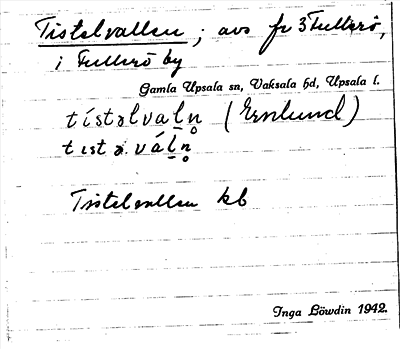 Tistelvallen; avs fr 3 Fullerö,
i Fullerö by
Gamla Upsala sn, Vaksala hd, Upsala l.
tístəlvaḷn̥ (Ernlund)
tɩstəváḷn̥
Tistelvallen kb
Inga Löwdin 1942.